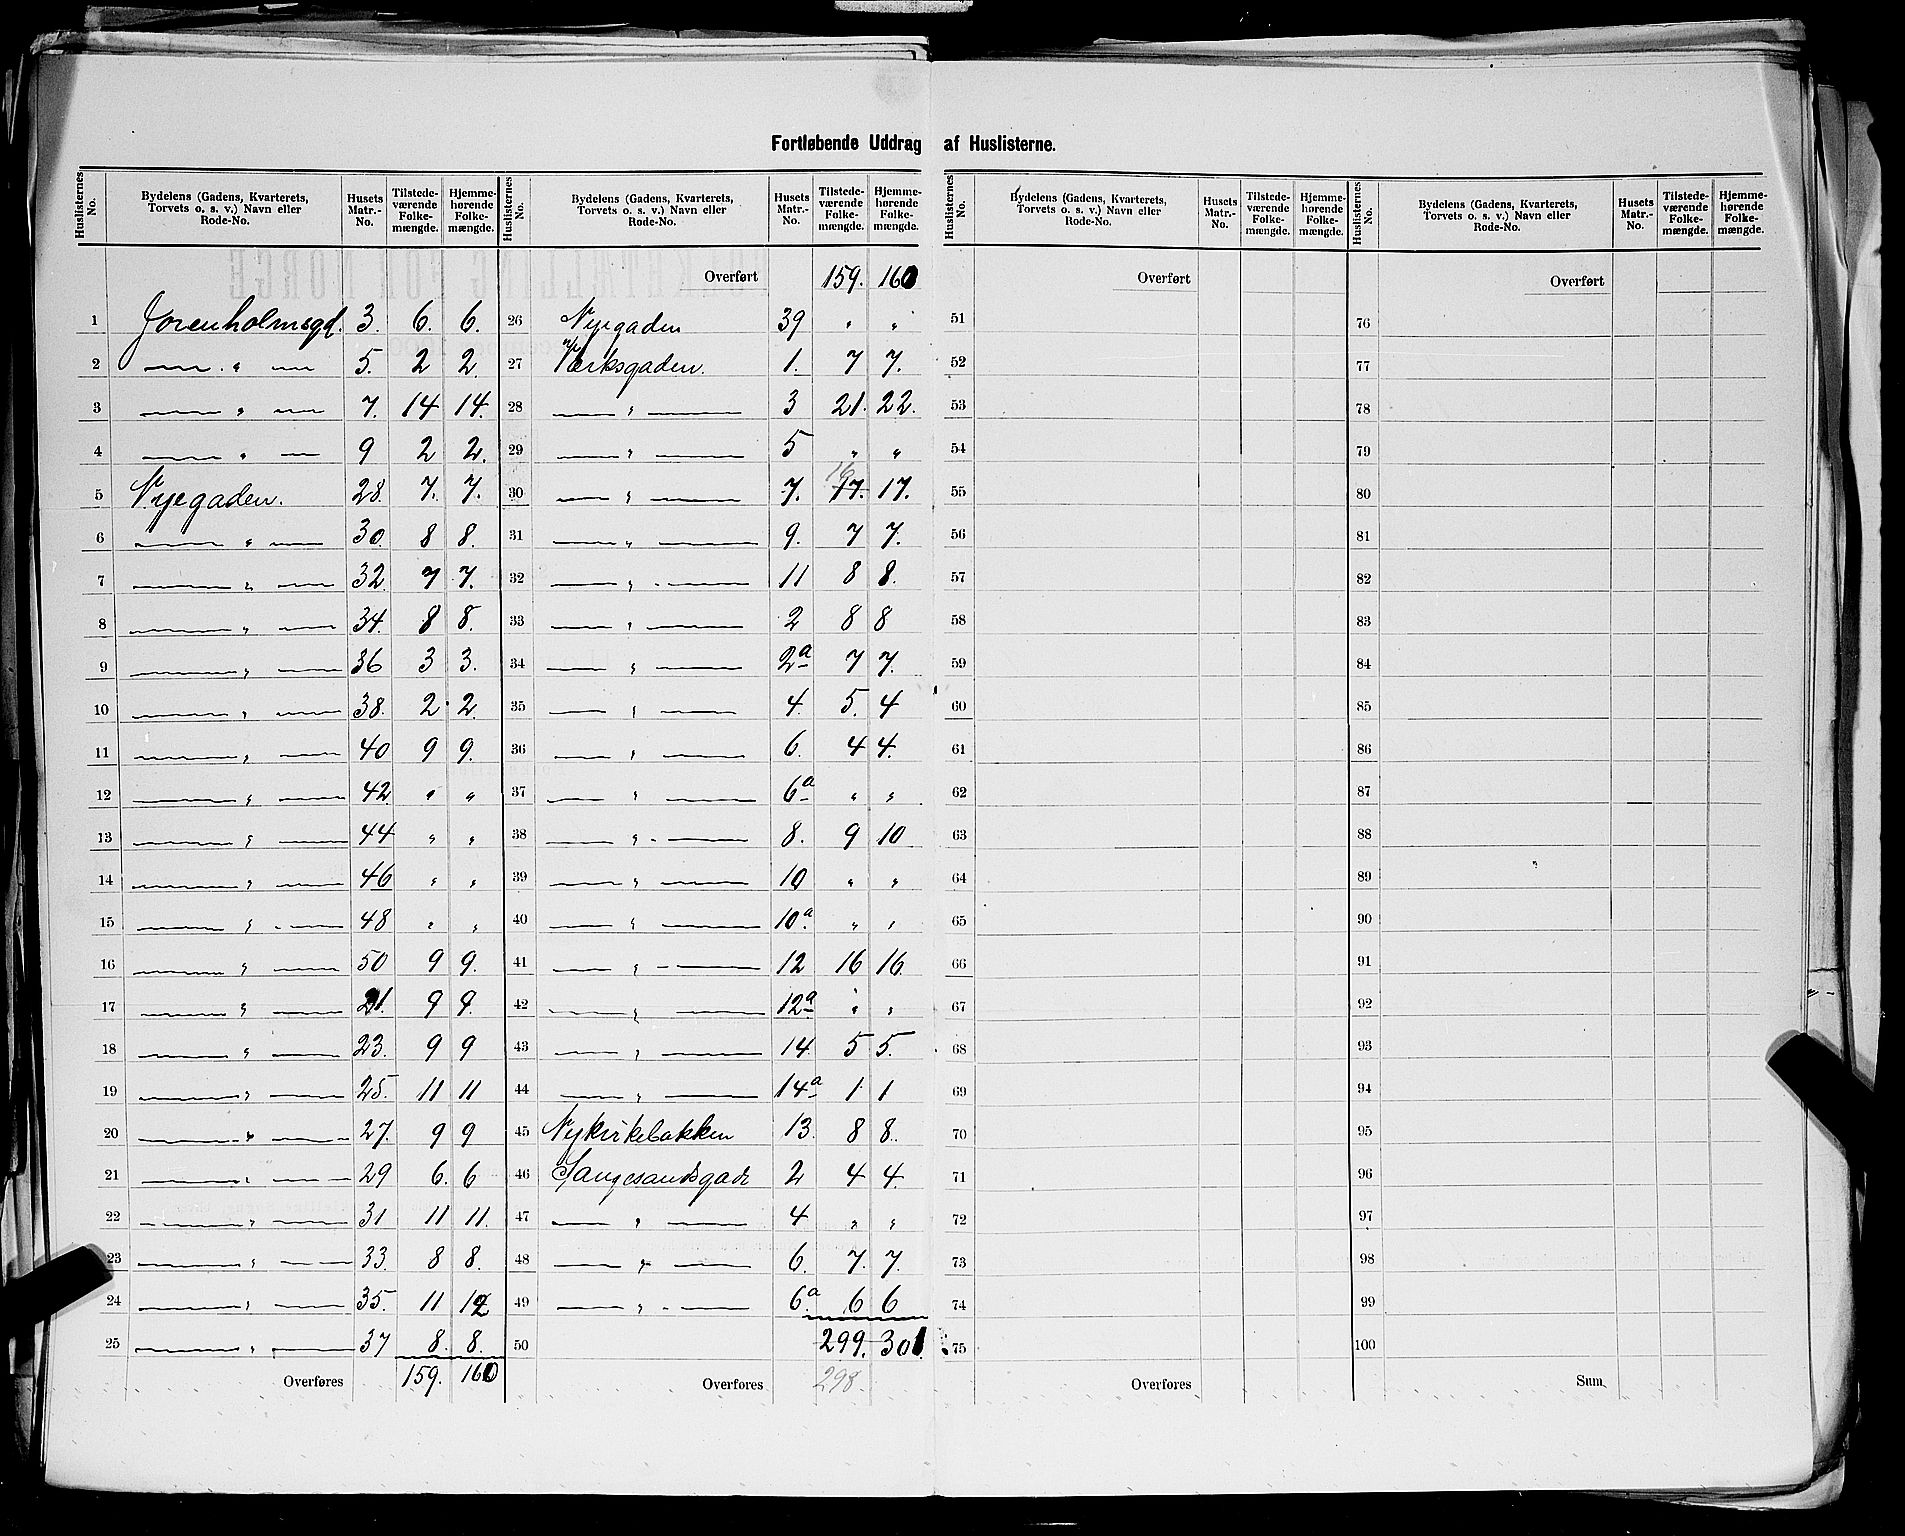 Fortløbende Uddrag af Huslisterne.
Huslisternes No. | Bydelens (Gadens, Kvarterets, Torvets o. s. v.) Navn eller Rode-No. | Husets Matr.-No. | Tilstedeværende Folkemængde. | Hjemmehørende Folkemængde.
1 Jorenholmsgd. 3. 6. 6.
2 — " — 5. 2 2.
3 — " — 7. 14 14.
4 — " — 9 2 2.
5 Nyegaden. 28. 7. 7.
6 — " — 30. 8 8.
7 — " — 32. 7 7.
8 — " — 34. 8 8.
9 — " — 36 3 3.
10 — " — 38. 2 2.
11 — " — 40 9 9.
12 — " — 42 " "
13 — " — 44 " "
14 — " — 46 " "
15 — " — 48 " "
16 — " — 50 9 9.
17 — " — 21. 9 9.
18 — " — 23. 9 9
19 — " — 25. 11 11
20 — " — 27. 9 9
21 — " — 29 6. 6
22 — " — 31 11 11.
23 — " — 33. 8 8.
24 — " — 35. 11 12
25 — " — 37 8. 8.
Overføres 159. 160
Huslisternes No. | Bydelens (Gadens, Kvarterets, Torvets o. s. v.) Navn eller Rode-No. | Husets Matr.-No. | Tilstedeværende Folkemængde. | Hjemmehørende Folkemængde.
Overført 159. 160
26 Nyegaden 39 " "
27 Værksgaden. 1. 7 7.
28 — " — 3 21. 22.
29 — " — 5 " "
30 — " — 7. 16 17. 17.
31 — " — 9. 7 7.
32 — " — 11 8 8.
33 — " — 2 8 8
34 — " — 2a 7 7.
35 — " — 4. 5. 4
36 — " — 6. 4 4.
37 — " — 6a " "
38 — " — 8. 9 10
39 — " — 10 " "
40 — " — 10a. " "
41 — " — 12 16 16.
42 — " — 12a " "
43 — " — 14. 5 5.
44 — " — 14a 1 1
45 Nykirkebakken 13. 8 8.
46 Langesandsgade 2 4 4.
47 — " — 4 " "
48 — " — 6. 7. 7.
49 — " — 6a. 6 6
50 299. 301.
Overføres 298.
Huslisternes No. | Bydelens (Gadens, Kvarterets, Torvets o. s. v.) Navn eller Rode-No. | Husets Matr.-No. | Tilstedeværende Folkemængde. | Hjemmehørende Folkemængde.
Overført
51
52
53
54
55
56
57
58
59
60
61
62
63
64
65
66
67
68
69
70
71
72
73
74
75
Overføres
Huslisternes No. | Bydelens (Gadens, Kvarterets, Torvets o. s. v.) Navn eller Rode-No. | Husets Matr.-No. | Tilstedeværende Folkemængde. | Hjemmehørende Folkemængde.
Overført
76
77
78
79
80
81
82
83
84
85
86
87
88
89
90
91
92
93
94
95
96
97
98
99
100
Sum